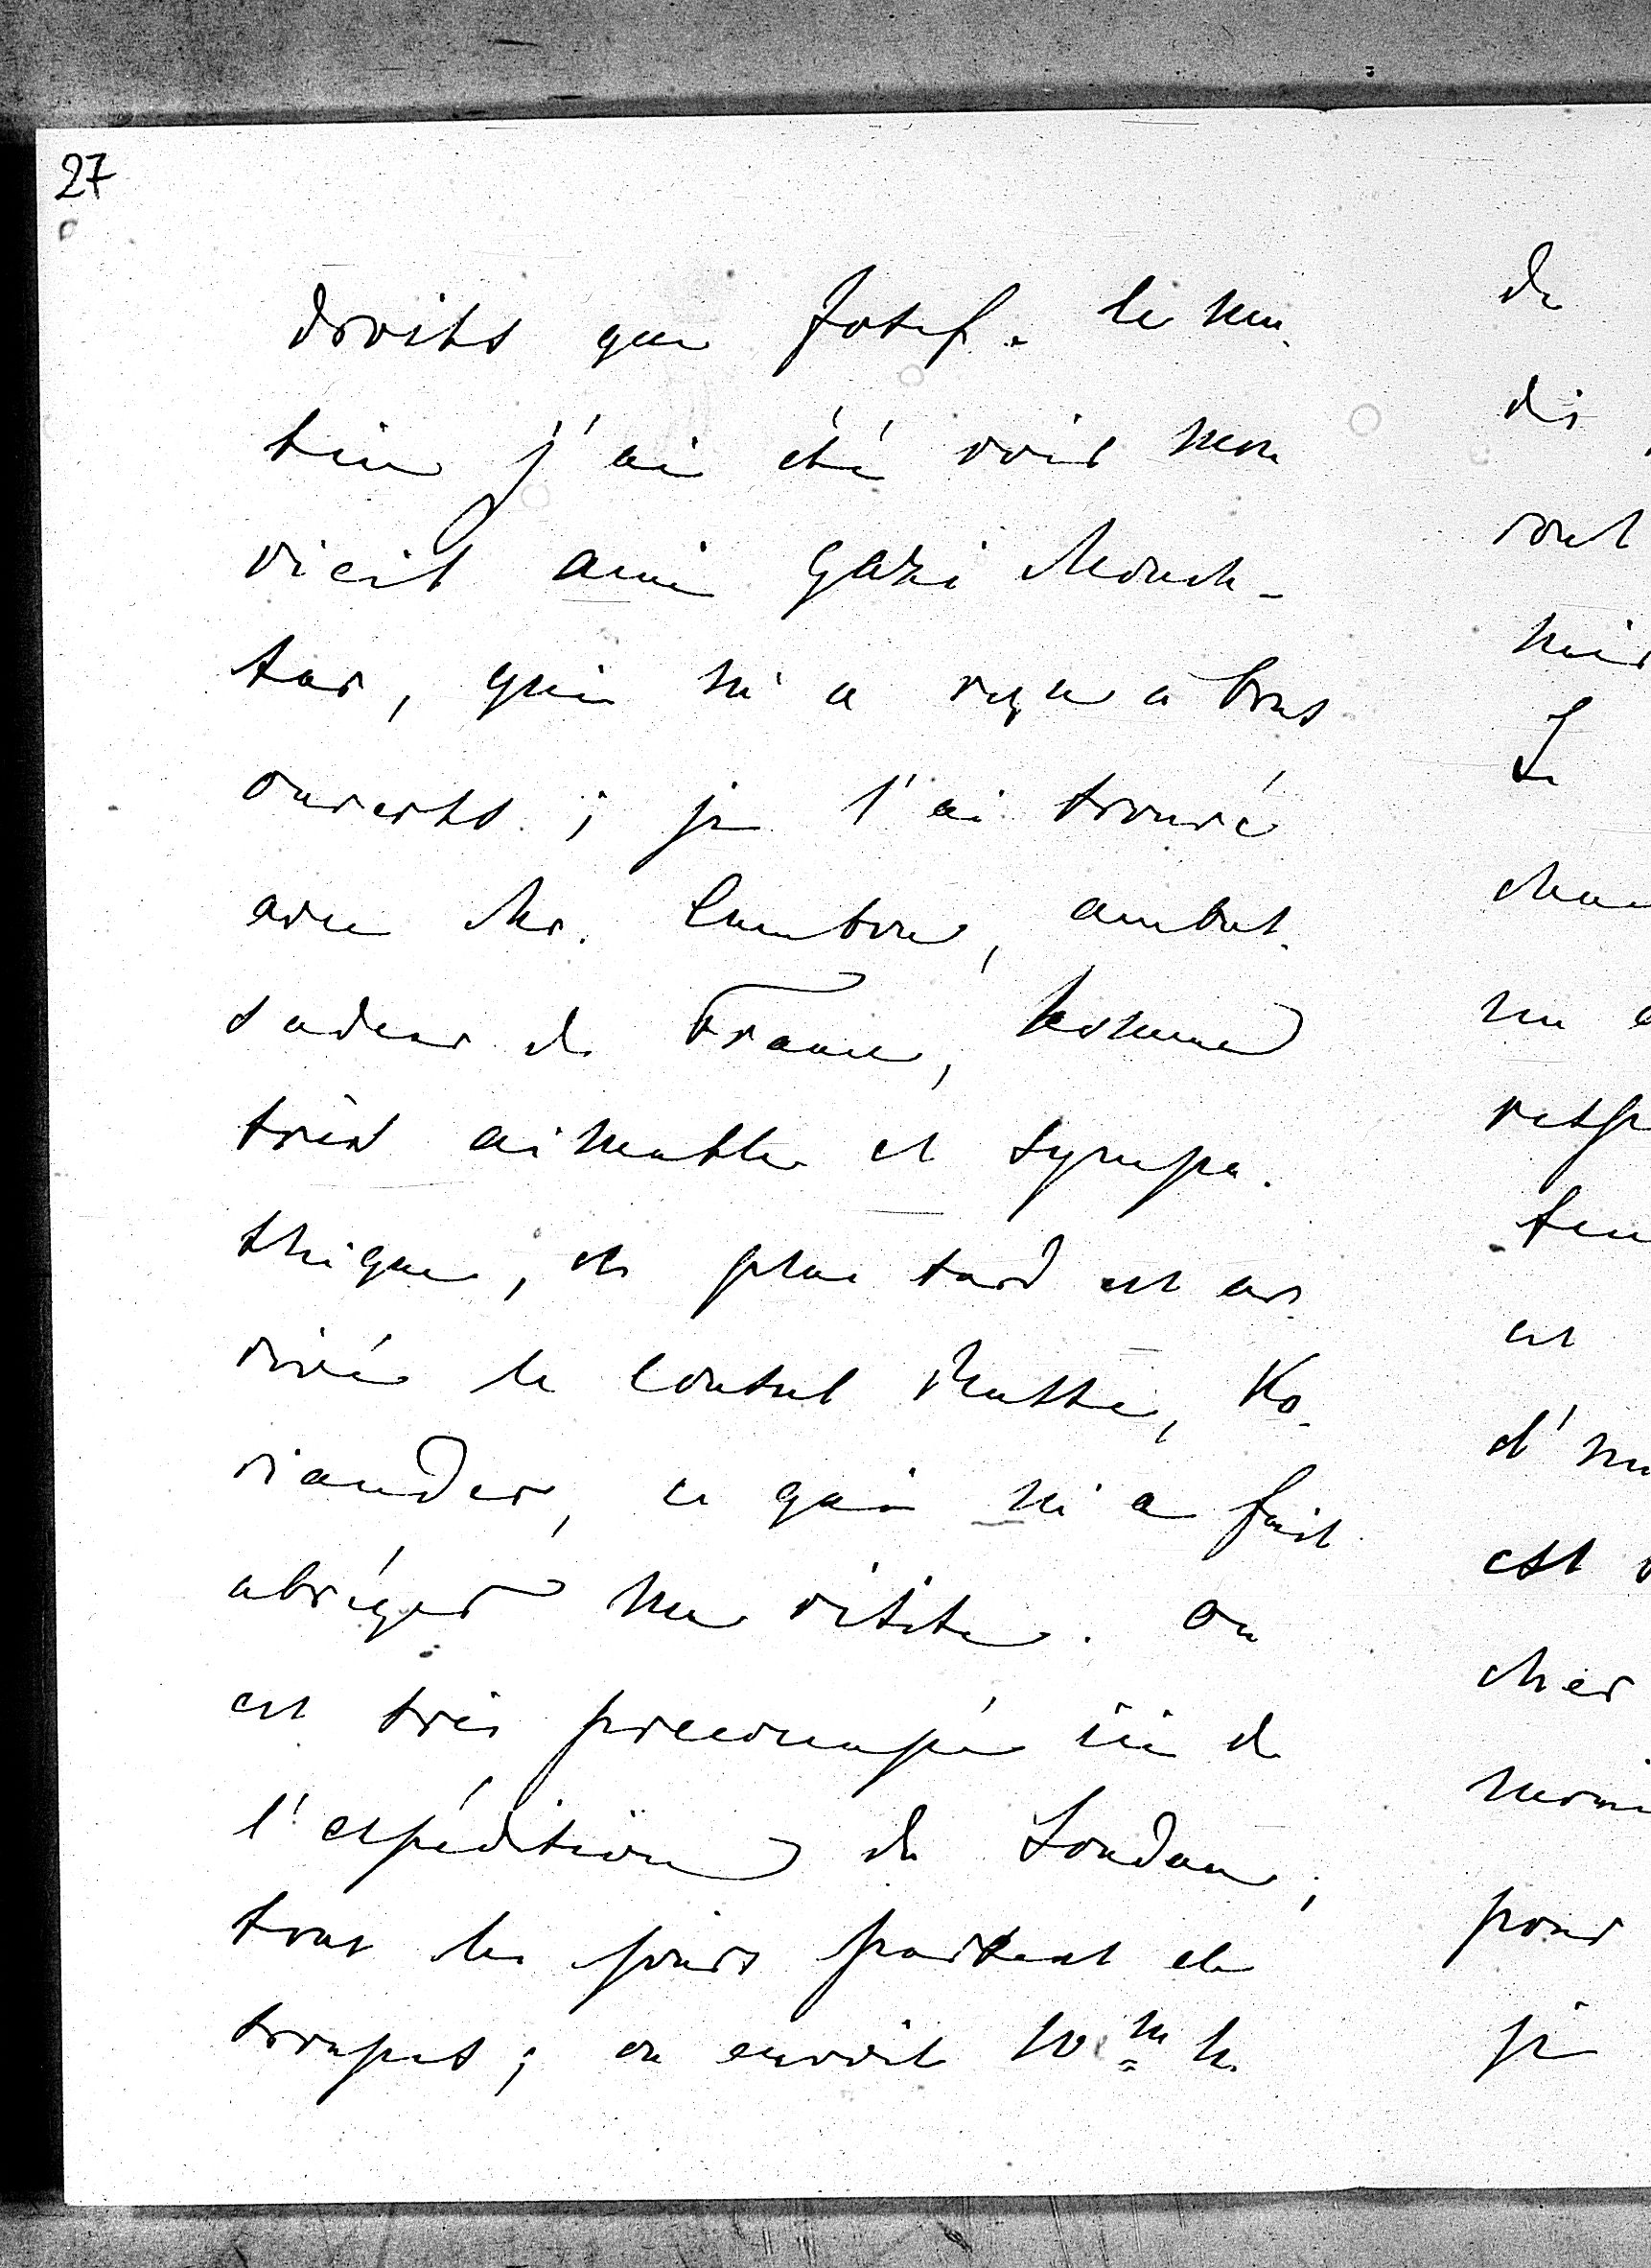 27
droits que Josef. Ce ma-
tin j'ai été voir mon
vieil ami Gazi Mouch-
tar, qui m'a reçu a bras
ouverts; je l'ai trouvé
avec Mr. Cambon, ambas-
sadeur de France, homme
très aimable et sympa-
thique, et plus tard est ar-
rivé le Consul Russe, Ko-
iander, ce qui m'a fait
abréger ma visite. On
est très preoccupé ici de
l'expédition du Soudan;
tous les jours partent des
troupes; on envoit 10 m h.
de
des
sont
mir
Le
chan
me
resp
ten
est
d'
est
cher
pour
je